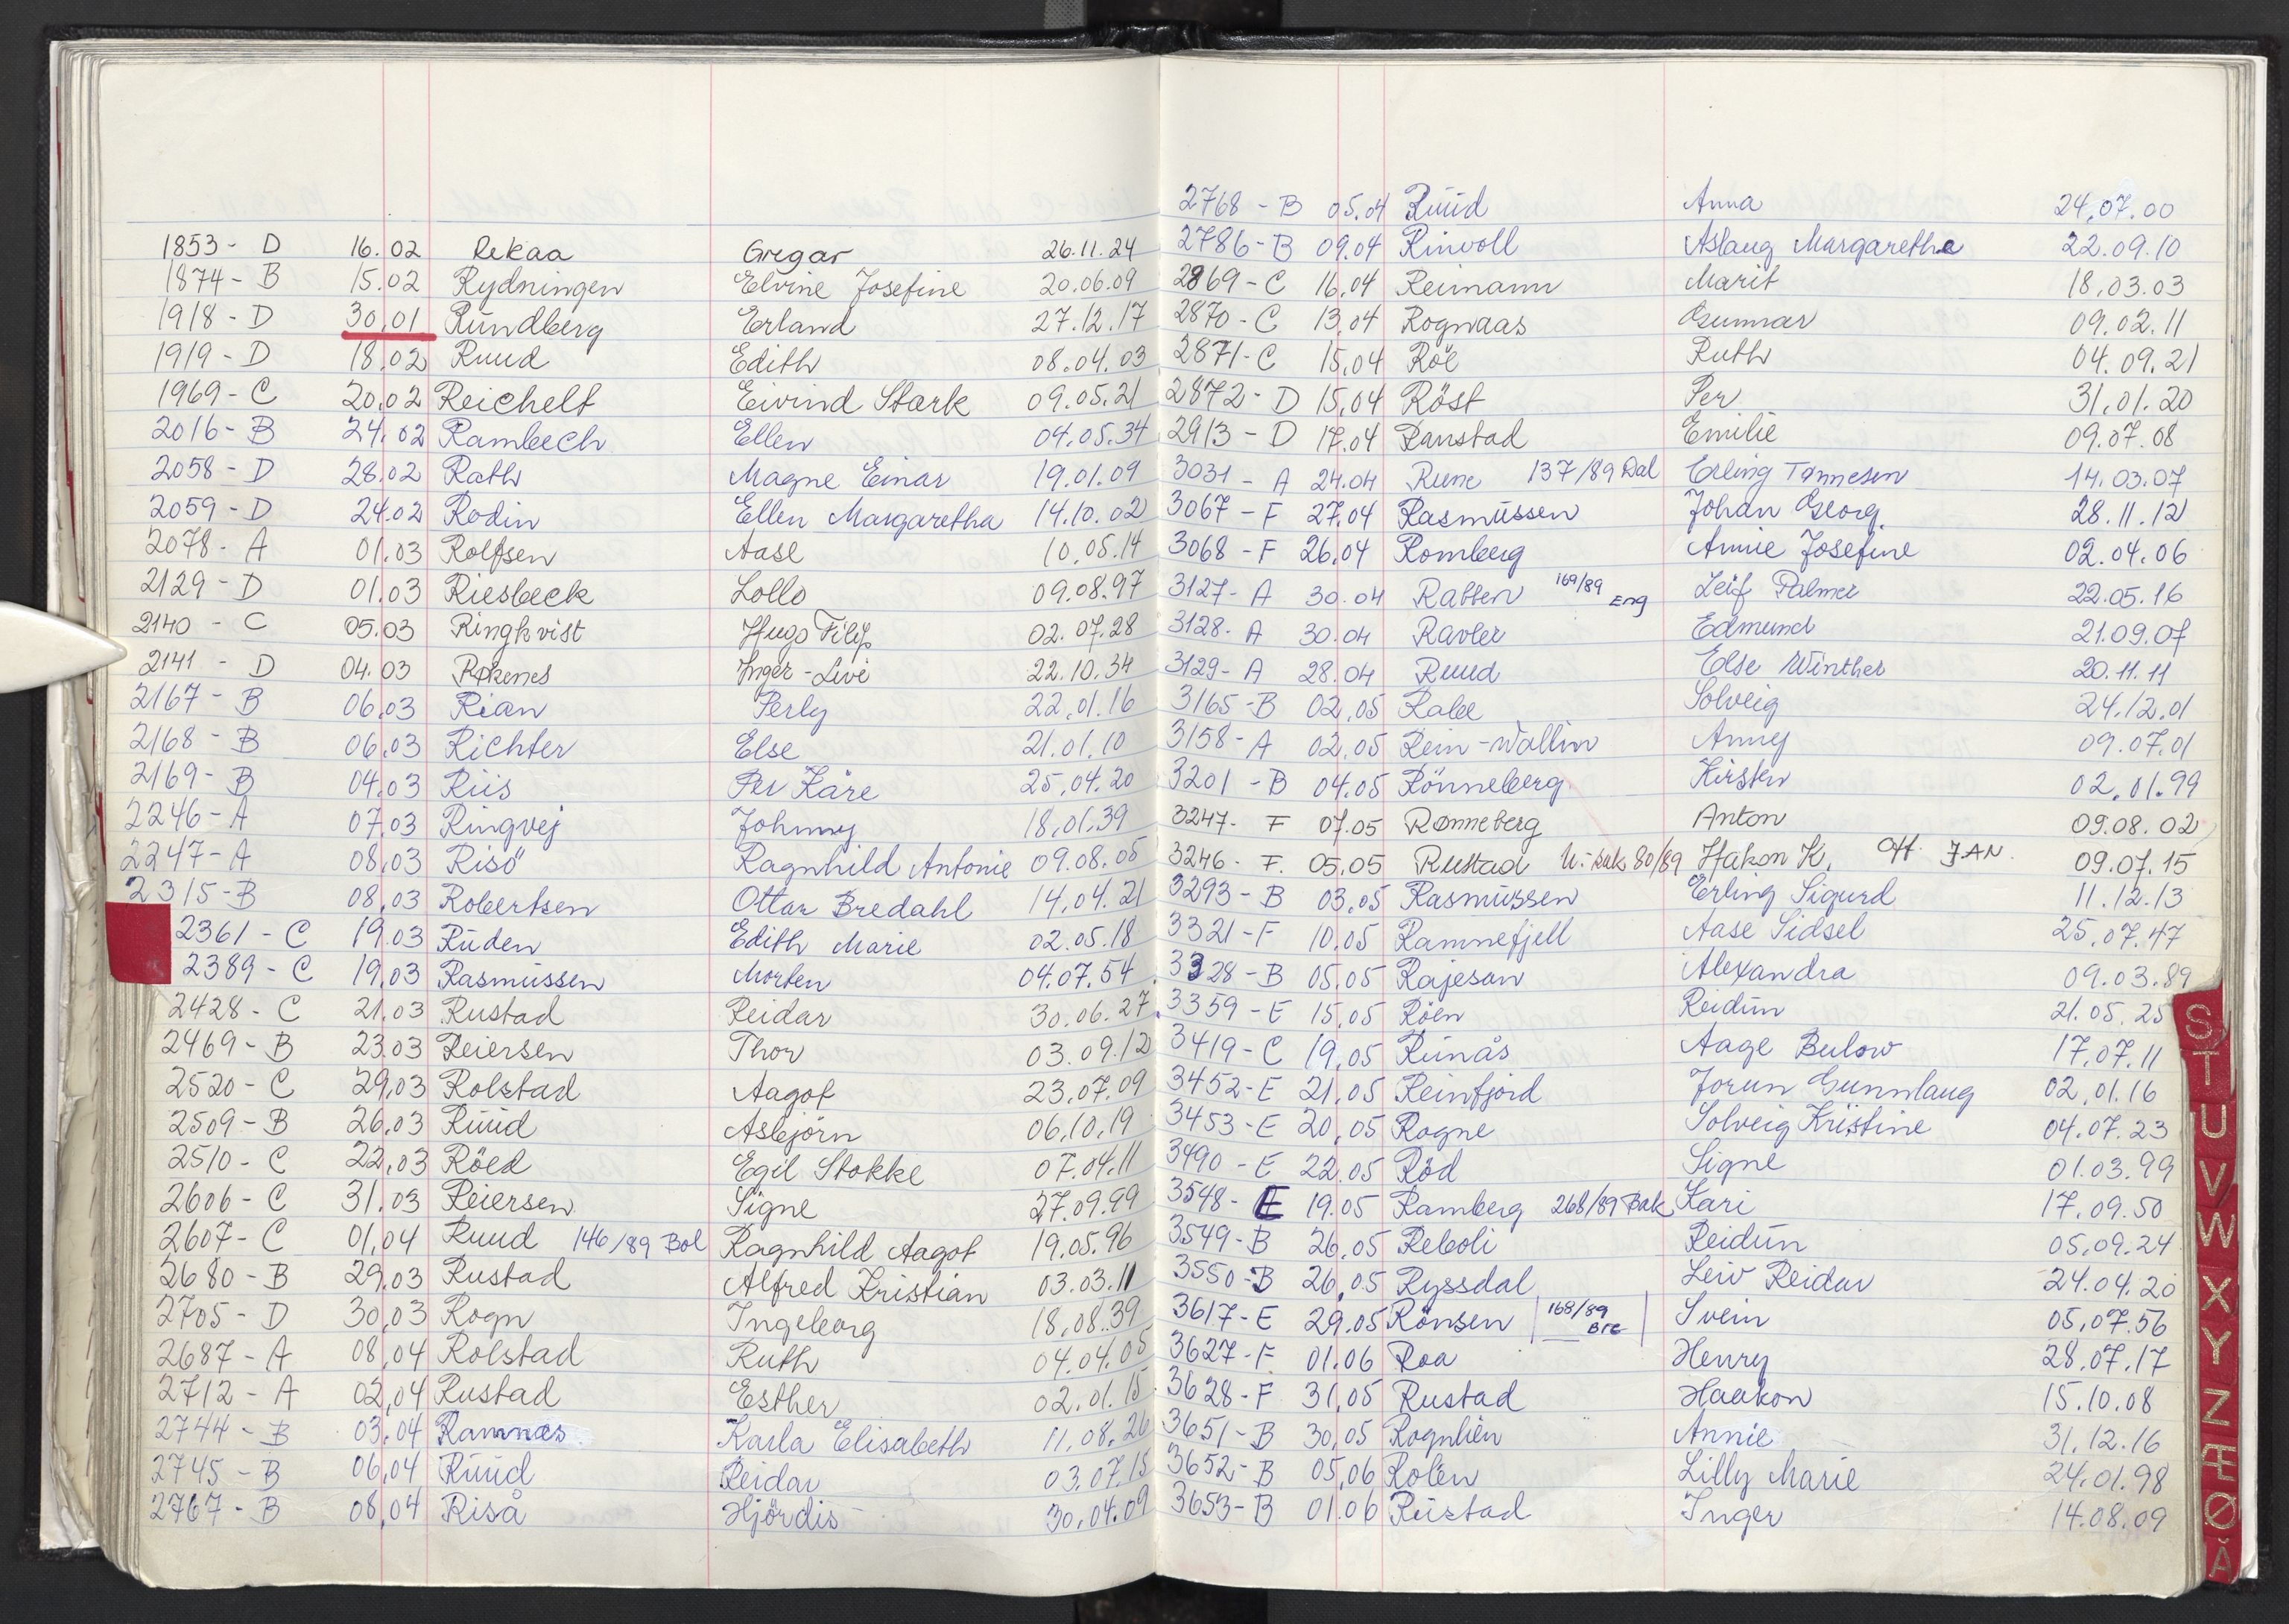 1853 - D 16.02 Rekaa Gregar 26.11.24
1874 - B 15.02 Rydningen Elvine Josefine 20.06.09
1918 - D 30.01 Rundberg Erland 27.12.17
1919 - D 18.02 Ruud Edith 08.04.03
1969 - C 20.02 Reichelt Eivind Stark 09.05.21
2016 - B 24.02 Rambech Ellen 04.05.34
2058 - D 28.02 Rath Magne Einar 19.01.09
2059 - D 24.02 Rodin Ellen Margaretha 14.10.02
2078 - A 01.03 Rolfsen Aase 10.05.14
2129 - D 01.03 Riesbeck Lollo 09.08.97
2140 - C 05.03 Ringkvist Hugo Filip 02.07.28
2141 - D 04.03 Røkenes Inger-Live 22.10.34
2167 - B 06.03 Rian Perly 22.01.16
2168 - B 06.03 Richter Else 21.01.10
2169 - B 04.03 Riis Per Kåre 25.04.20
2246 - A 07.03 Ringvej Johnny 18.01.39
2247 - A 08.03 Risö Ragnhild Antonie 09.08.05
2315 - B 08.03 Robertsen Ottar Bredahl 14.04.21
2361 - C 19.03 Ruden Edith Marie 02.05.18
2389 - C 19.03 Rasmussen Morten 04.07.54
2428 - C 21.03 Rustad Reidar 30.06.27
2469 - B 23.03 Reiersen Thor 03.09.12
2520 - C 29.03 Rolstad Aagot 23.07.09
2509 - B 26.03 Ruud Asbjörn 06.10.19
2510 - C 22.03 Röed Egil Stokke 07.04.11
2606 - C 31.03 Reiersen Signe 27.09.99
2607 - C 01.04 Ruud 146/89 Bol Ragnhild Aagot 19.05.96
2680 - B 29.03 Rustad Alfred Kristian 03.03.11
2705 - D 30.03 Rogn Ingeborg 18.08.39
2687 - A 08.04 Rolstad Ruth 04.04.05
2712 - A 02.04 Rustad Esther 02.01.15
2744 - B 03.04 Ramnæs Karla Elisabeth 11.08.26
2745 - B 06.04 Ruud Reidar 03.07.15
2767 - B 08.04 Riså Hjördis 30.04.09
2768 - B 05.04 Ruud Anna 24.07.00
2786 - B 09.04 Rinvoll Aslaug Margarethe 22.09.10
2869 - C 16.04 Reimann Marit 18.03.03
2870 - C 13.04 Rognaas Gunnar 09.02.11
2871 - C 15.04 Röe Ruth 04.09.21
2872 - D 15.04 Röst Per 31.01.20
2913 - D 17.04 Ranstad Emilie 09.07.08
3031 - A 24.04 Rune 137/89 Dal Erling Tønnesen 14.03.07
3067 - F 27.04 Rasmussen Johan Georg. 28.11.12
3068 - F 26.04 Romberg Annie Josefine 02.04.06
3127 - A 30.04 Ratten 169/89 Eng Leif Palmer 22.05.16
3128 - A 30.04 Ravler Edmund 21.09.07
3129 - A 28.04 Ruud Else Winther 20.11.11
3165 - B 02.05 Rabe Solveig 24.12.01
3158 - A 02.05 Rein-Wallin Anny 09.07.01
3201 - B 04.05 Rönneberg Kirsten 02.01.99
3247 - F 07.05 Rønneberg Anton 09.08.02
3246 - F. 05.05 Rustad U.-sak 80/89 Håkon K. Off. JAN. 09.07.15
3293 - B 03.05 Rasmussen Erling Sigurd 11.12.13
3321 - F 10.05 Ramnefjell Aase Sidsel 25.07.47
3328 - B 05.05 Rajesan Alexandra 09.03.89
3359 - E 15.05 Röen Reidun 21.05.25
3419 - C 19.05 Runås Aage Bulow 17.07.11
3452 - E 21.05 Reinfjord Jorun Gunnlaug 02.01.16
3453 - E 20.05 Rogne Solveig Kristine 04.07.23
3490 - E 22.05 Röd Signe 01.03.99
3548 - E 19.05 Ramberg 268/89 Bak Kari 17.09.50
3549 - B 26.05 Reboli Reidun 05.09.24
3550 - B 26.05 Ryssdal Leiv Reidar 24.04.20
3617 - E 29.05 Rönsen 168/89 Bre Svein 05.07.56
3627 - F 01.06 Roa Henry 28.07.17
3628 - F 31.05 Rustad Haakon 15.10.08
3651 - B 30.05 Rognlien Annie 31.12.16
3652 - B 05.06 Rolen Lilly Marie 24.01.98
3653 - B 01.06 Rustad Inger 14.08.09
S
T
U
V
W
X
Y
Z
Æ
Ø
Å